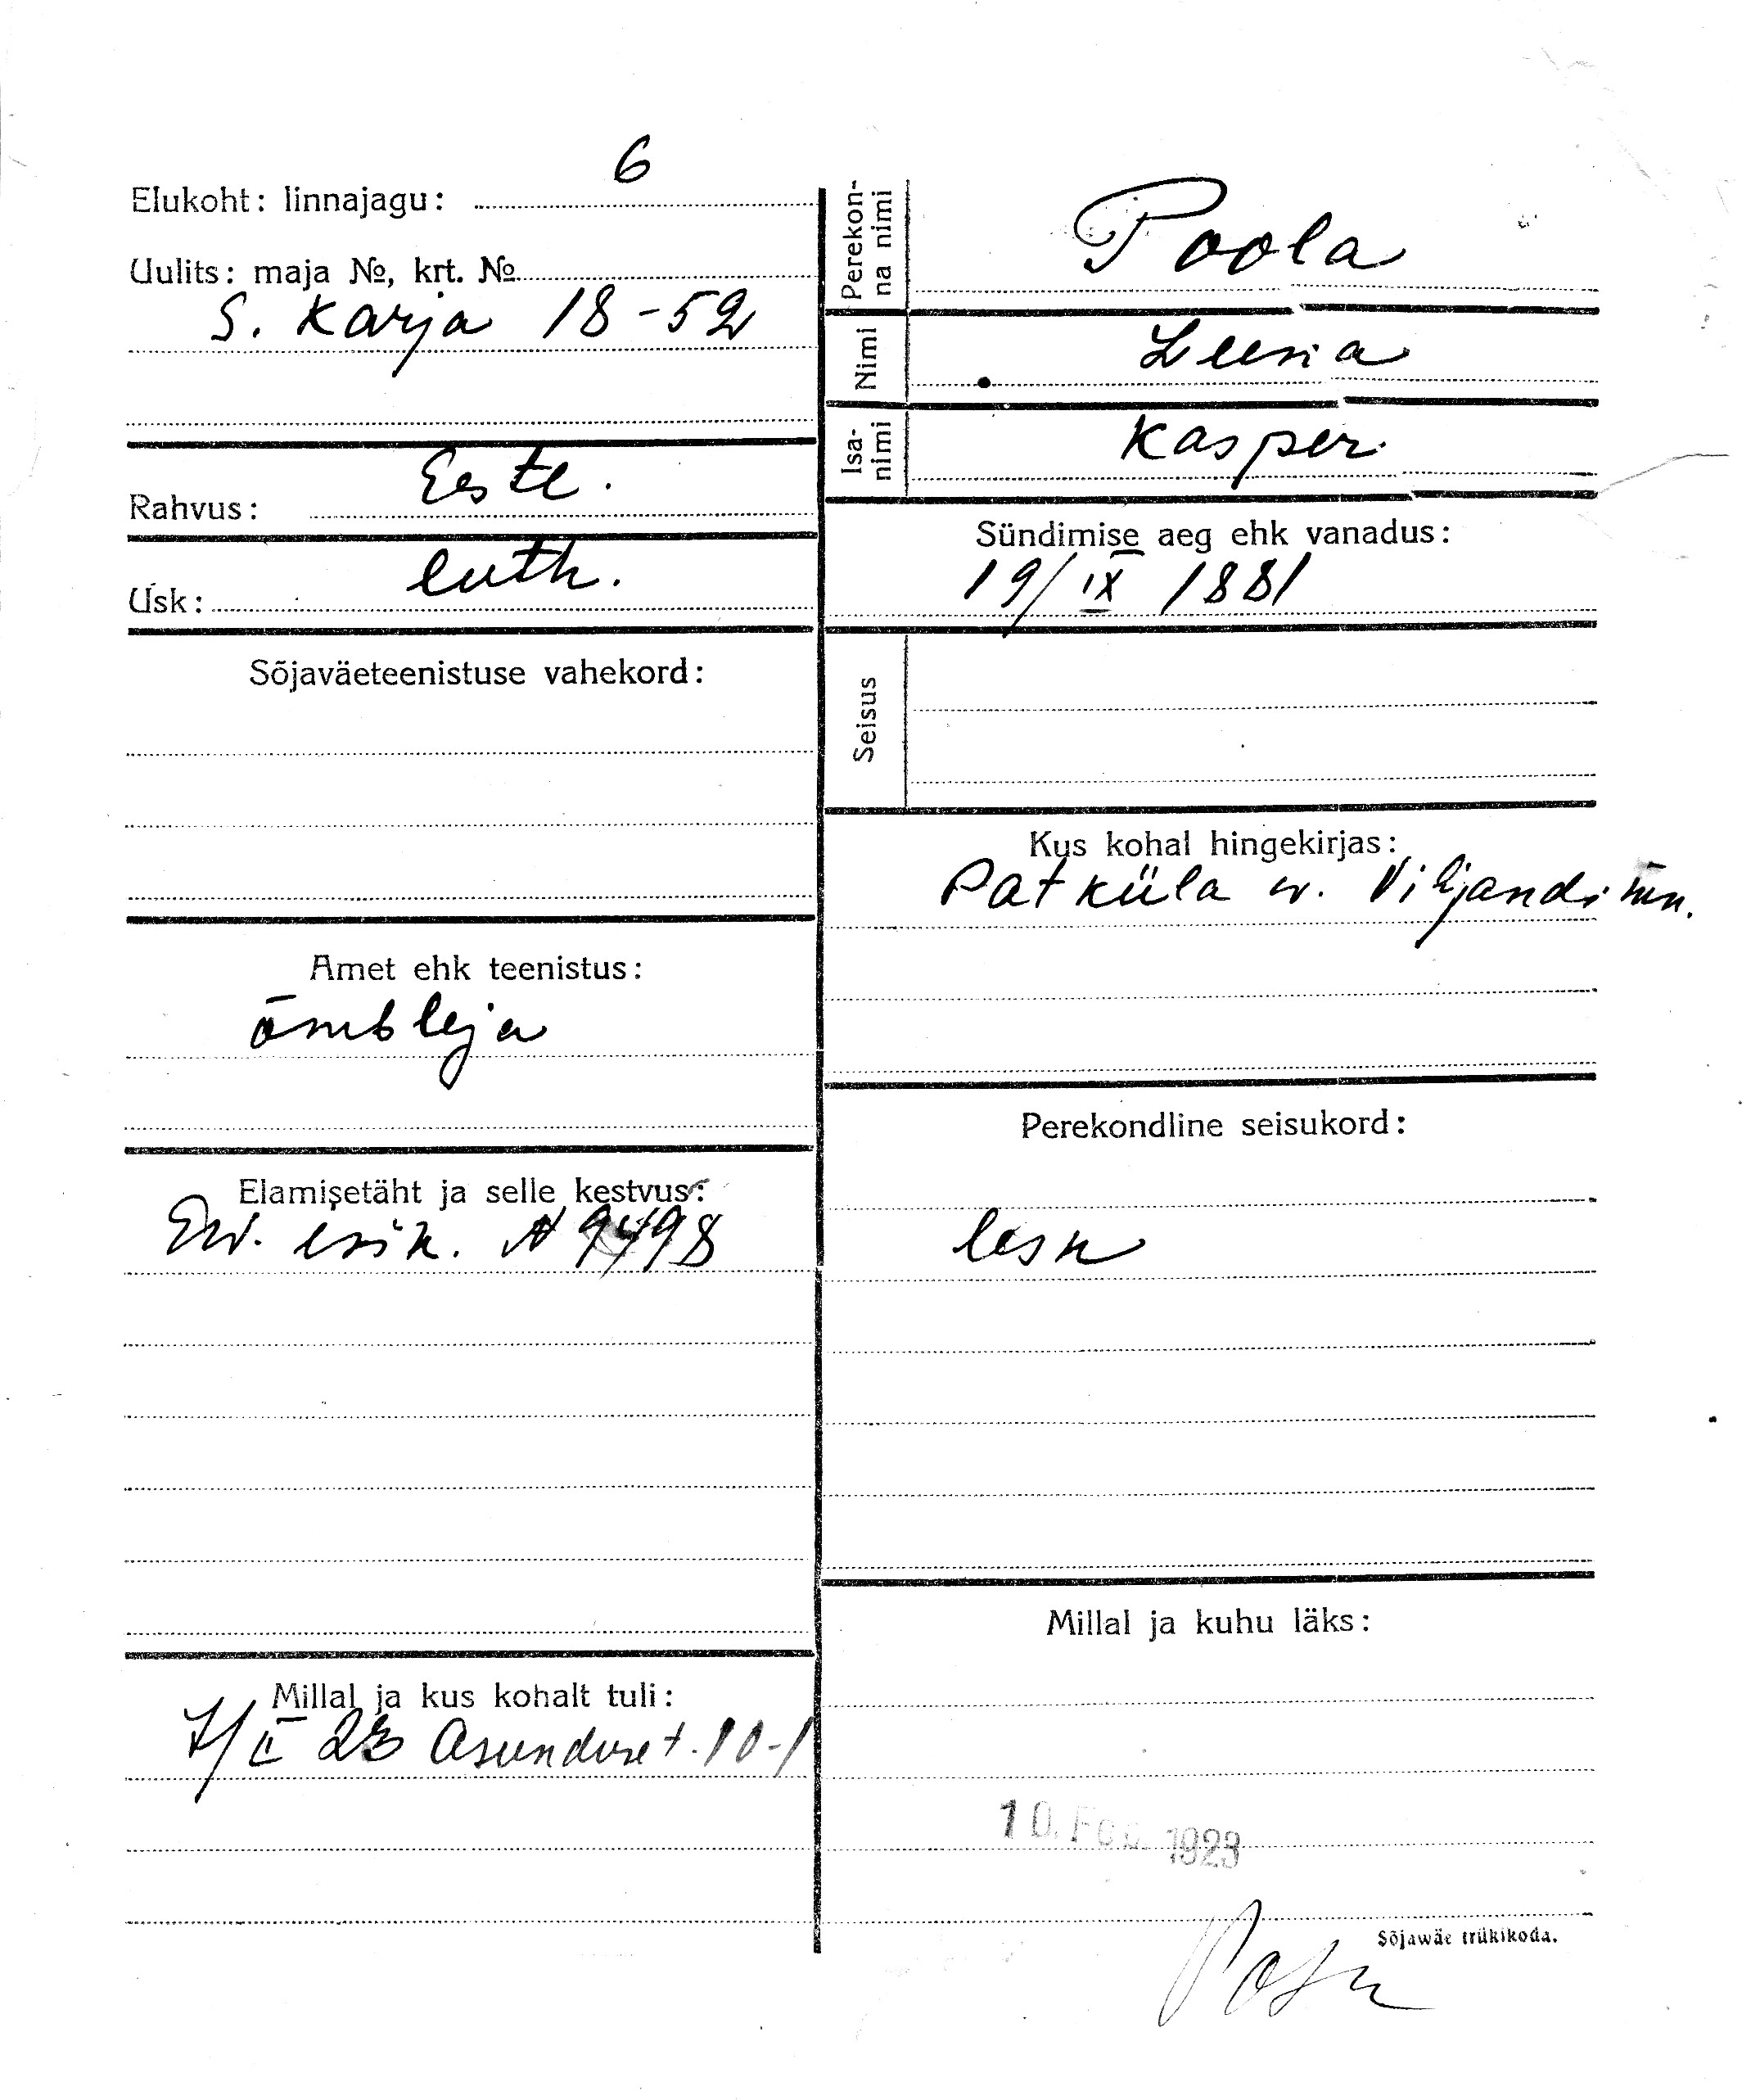 6
Elukoht: linnajagu:
Uulits: maja №, krt. №
S. Karja 18-52
Rahvus: Eestl.
Usk: luth.
Sõjaväeteenistuse vahekord:
Amet ehk teenistus:
õmbleja
Elamisetäht ja selle kestvus:
Ew. isik. N 9498
Millal ja kus kohalt tuli:
7/II 23 Asunduse t. 10-1
Perekon-
na nimi
Poola
Nimi
Leena
Isa-
nimi
Kasper
Sündimise aeg ehk vanadus:
19/IX 1881
Seisus
Kus kohal hingekirjas:
Pat küla w. Viljandi mn.
Perekondline seisukord:
lesk
Millal ja kuhu läks:
10. Feb. 1923
Sõjawäe trükikoda.